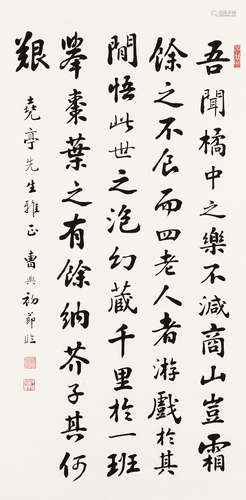 吾聞橘中之樂不減商山豈霜
餘之不食而四老人者游戲於其
間悟此世之泡幻藏千里於一班
舉棗葉之有餘納芥子其何
艱
堯亭先生雅正 曹典初節臨